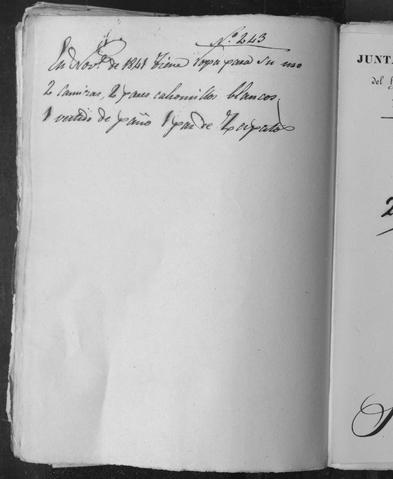 Nº 243
En Nov.e de 1841 tiene ropa para su uso
2 camisas, 2 pares calsonsillos blancos
1 vestido de paño 1 par de Zapatos
JUNTA
del
2